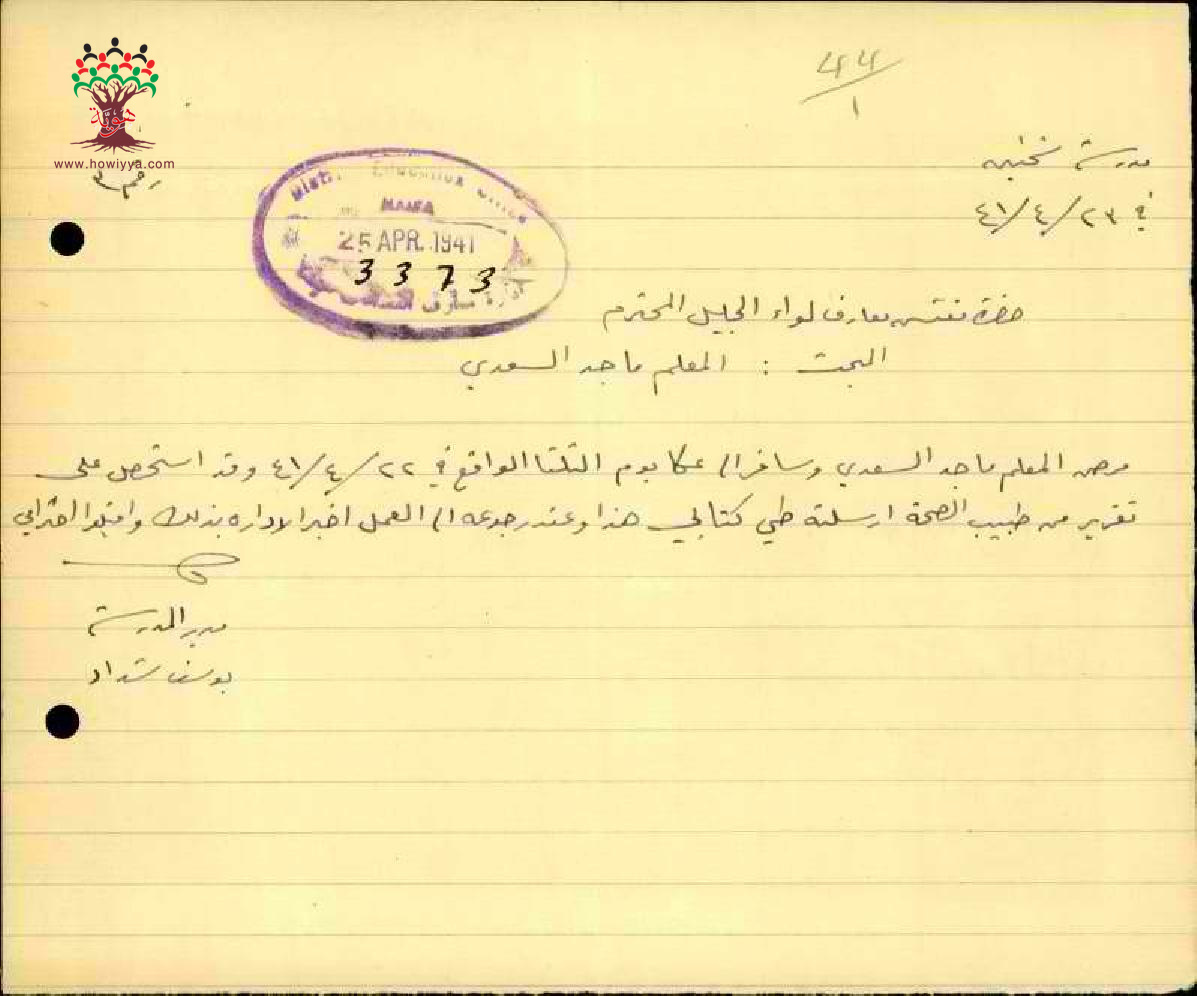 44/1
هوية
www.howiyya.com
رقم
مدرسة
في ٢٣/٤/٤١
District Education Office
HAIFA
25 APR. 1941
3373
ادارة معارف
حضرة مفتش معارف لواء الجليل المحترم
البحث : المعلم ماجد السعدي
مرض المعلم ماجد السعدي وسافر الى عكا يوم الثلثا الواقع في ٢٢/٤/٤١ وقد استحصل على
تقرير من طبيب الصحة ارسلته طي كتابي هذا وعند رجوعه الى العمل اخبر الاداره بذلك واقبلوا احترامي
مدير المدرسة
يوسف شداد